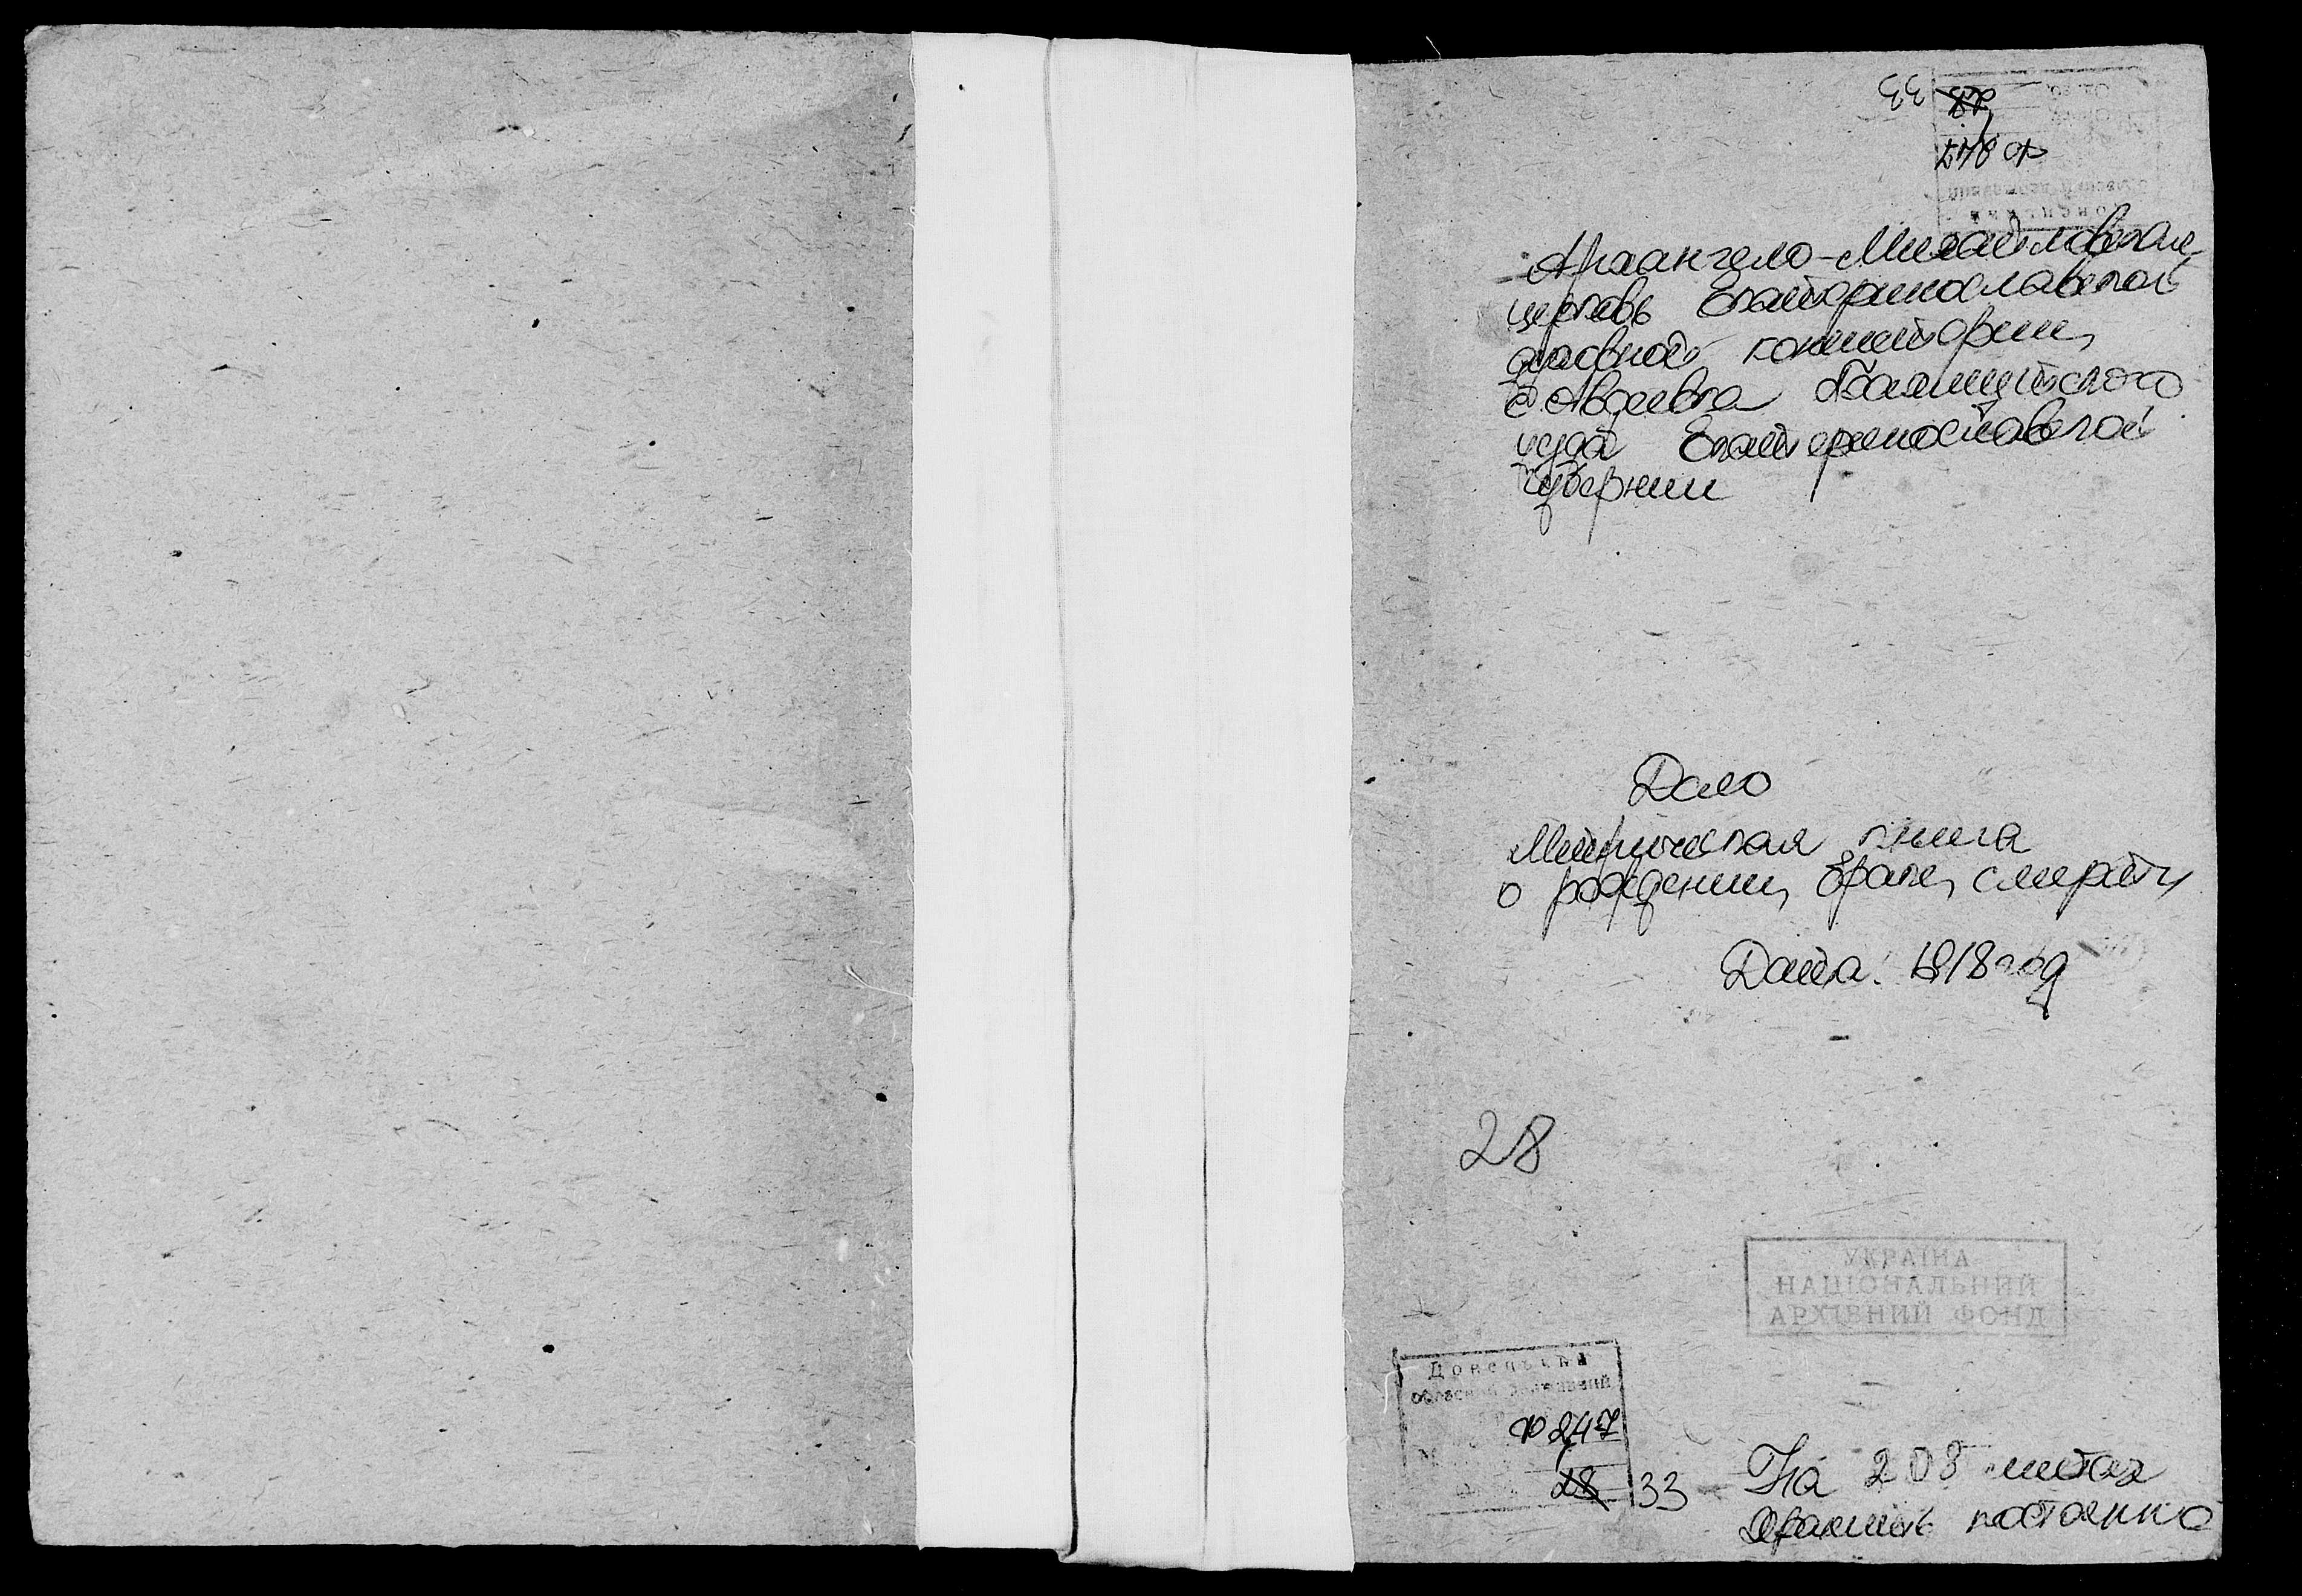 33
28
Ф 247
Архангело-Михайловская
церковь Екатеринославской
духовной консистории,
с. Авдеевка Бахмутского
уезда Екатеринославской
губернии
Дело
Метрическая книга
о рождении, браке, смерти
Дата: 1918 год
28
УКРАЇНА
НАЦІОНАЛЬНИЙ
АРХІВНИЙ ФОНД
Донецький
обласний державний
Ф 247
28 33
На 208 листах
Хранить постоянно